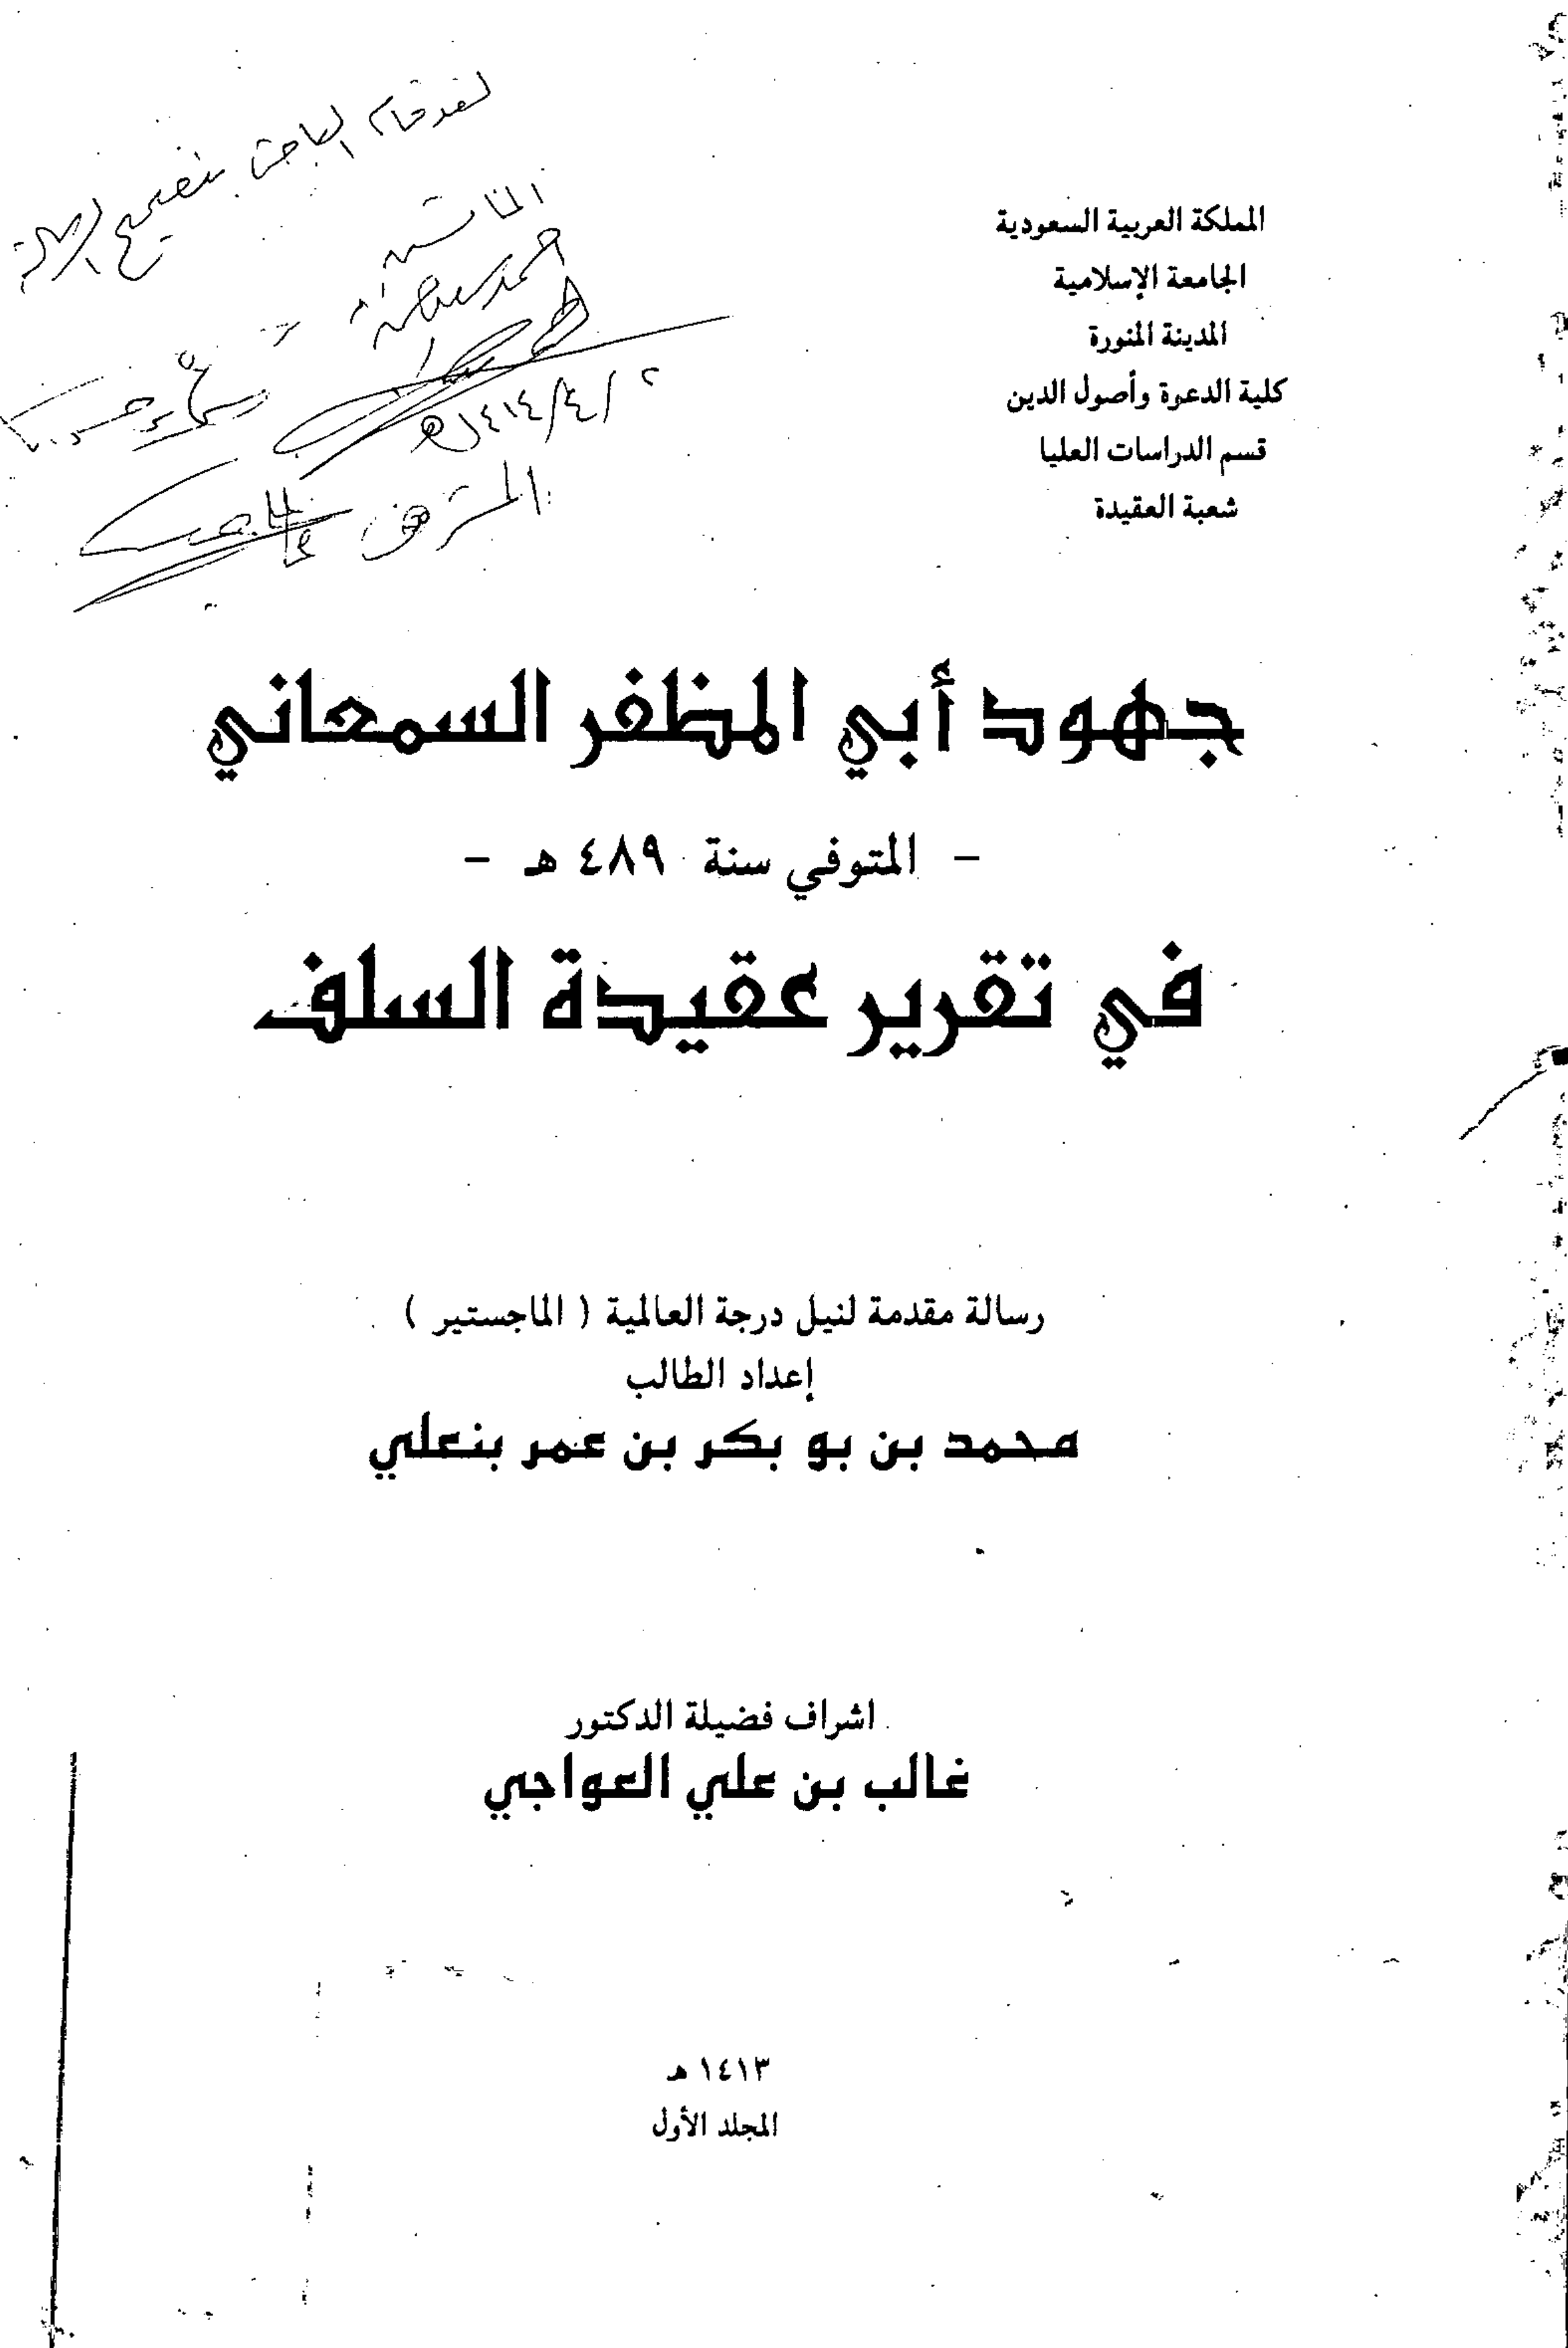 المملكة العربية السعودية
الجامعة الإسلامية
المدينة المنورة
كلية الدعوة وأصول الدين
قسم الدراسات العليا
شعبة العقيدة
لقد قام الباحث بتصحيح الرسالة
المناقش
٢ / ٤ / ١٤١٤ هـ
المشرف
جهود أبي المظفر السمعاني
- المتوفي سنة ٤٨٩ هـ -
في تقرير عقيدة السلف
رسالة مقدمة لنيل درجة العالمية ( الماجستير )
إعداد الطالب
محمد بن بو بكر بن عمر بنعلي
اشراف فضيلة الدكتور
غالب بن علي العواجي
١٤١٣ هـ
المجلد الأول